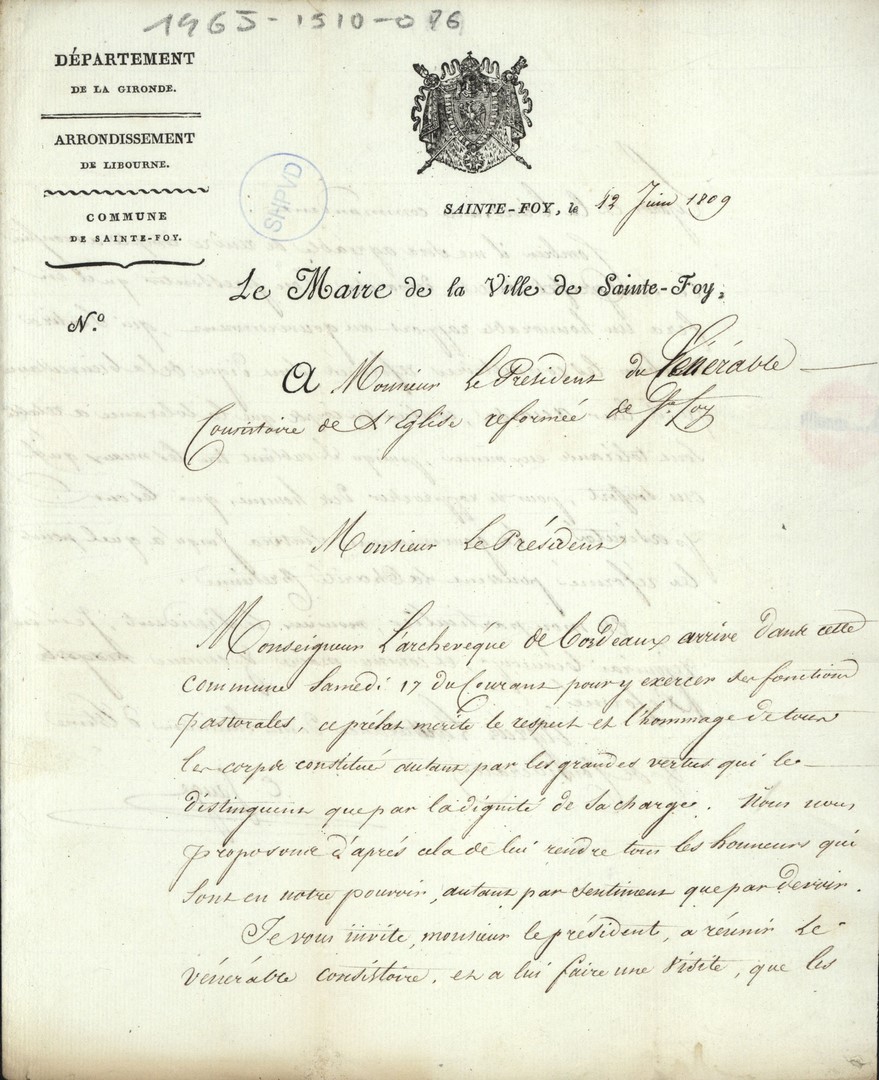 1965-1510-076
DÉPARTEMENT
DE LA GIRONDE.
ARRONDISSEMENT
DE LIBOURNE.
COMMUNE
DE SAINTE-FOY.
SHPVD
SAINTE-FOY, le 12 Juin 1809
Le Maire de la Ville de Sainte-Foy,
N.º
A Monsieur Le Président du Vénérable
Consistoire de L'Eglise reformée de Ste. Foy
Monsieur Le Président
Monseigneur L'archevêque de Bordeaux arrive dans cette
commune Samedi 17 du Courant pour y exercer ses fonctions
pastorales, ce prélat mérite le respect et l'hommage de tous
les corps constitué autant par les grandes vertus qui le
distinguent que par la dignité de sa charge. Nous nous
proposons d'aprés cela de lui rendre tous les honneurs qui
sont en notre pouvoir, autant par sentiment que par devoir.
Je vous invite, monsieur le président, a réunir Le
vénérable consistoire, et a lui faire une visite, que les